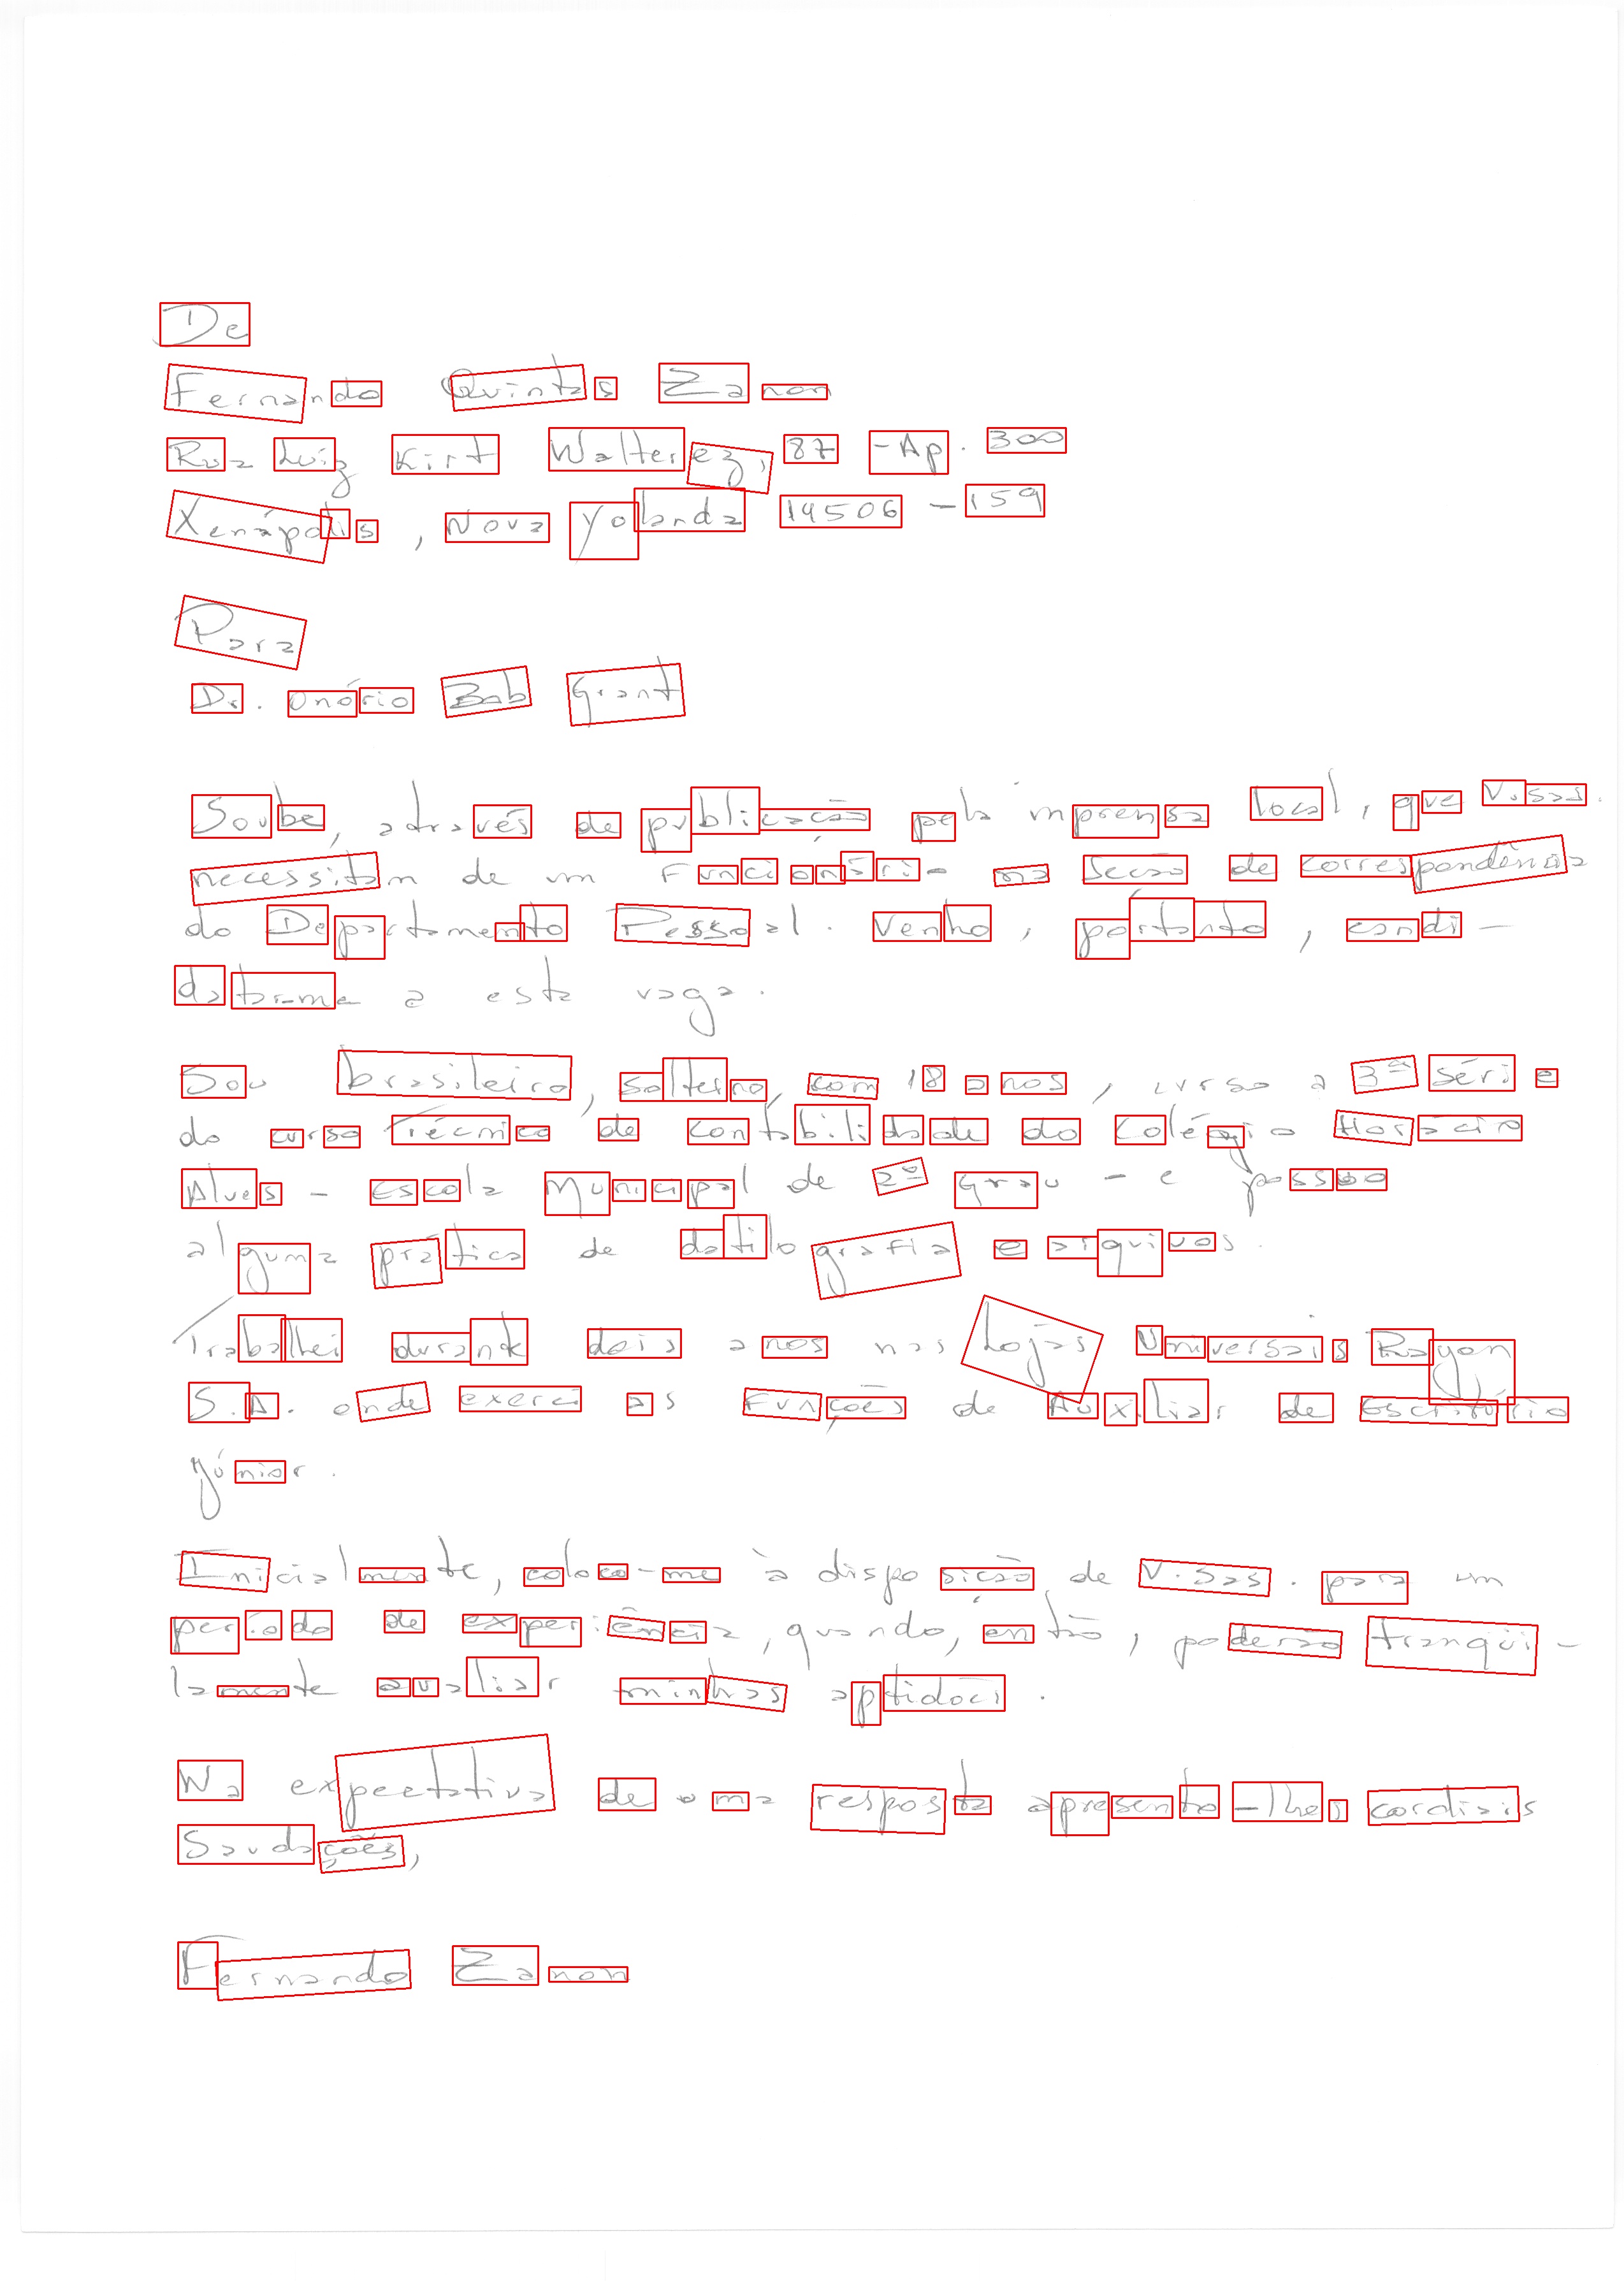 De
Fernando Quintas Zanon
Rua Luiz Kirt Walterez, 87 - Ap. 300
Xenápolis, Nova Yolanda 14506-159
Para
Dr. Onório Bab Grant
Soube, através de publicação pela imprensa local, que V.Sas.
necessitam de um funcionário na Seção de correspondência
do Departamento Pessoal. Venho, portanto, candi-
datar-me a esta vaga.
Sou brasileiro, solteiro, com 18 anos, curso a 3ª séri e
do curso Técnico de contabilidade do Colégio Horácio
Alves - Escola Municipal de 2º Grau - e posso
alguma prática de datilografia e arquivos.
Trabalhei durante dois anos nas Lojas Universais Rayon
S.A. onde exerci as funções de Auxiliar de Escritório
júnior.
Inicialmente, coloco-me à disposição de V.Sas. para um
período de experiência, quando, então, poderão tranqüi-
lamente avaliar minhas aptidões.
Na expectativa de uma resposta apresento-lhes cordiais
Saudações,
Fernando Zanon